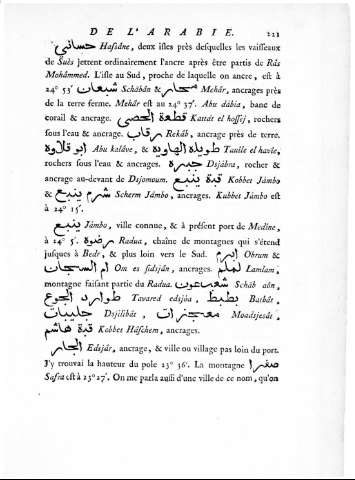 DE L'ARABIE. 221
حساني Hasâne, deux isles près desquelles les vaisseaux
de Suès jettent ordinairement l'ancre après être partis de Râs
Mohámmed. L'isle au Sud, proche de laquelle on ancre, est à
24° 55′ شبعان Schábân & محار Mehâr, ancrages près
de la terre ferme. Mehâr est au 24° 37′. Abu dábia, banc de
corail & ancrage. قطعة الحصي Kattât el hoffej, rochers
sous l'eau & ancrage. رقاب Rekâb, ancrage près de terre.
ابو قلاوة Abu kaláve, & طويلة الهاوية Tauile el havîe,
rochers sous l'eau & ancrages. جبرة Dsjábra, rocher &
ancrage au-devant de Dsjomoum. قبة ينبع Kobbet Jámbo
& شرم ينبع Scherm Jámbo, ancrages. Kubbet Jámbo est
à 24° 15′.
ينبع Jámbo, ville connue, & à présent port de Medine,
à 24° 5′. رضوة Radua, chaîne de montagnes qui s'étend
jusques à Bedr, & plus loin vers le Sud. Obrum &
ام السجان Om es sidsjân, ancrages. لملم Lamlam,
montagne faisant partie du Radua. شعب عون Schâb aûn,
طوارد الجوع Tavared edsjôa, بطبط Batbât,
جليبات Dsjilibât, معجزات Moadsjesât,
قبة هاشم Kobbet Hâschem, ancrages.
الجار Edsjâr, ancrage, & ville ou village pas loin du port.
J'y trouvai la hauteur du pole 23° 36′. La montagne صفرا
Safra est à 23° 27′. On me parla aussi d'une ville de ce nom, qu'on